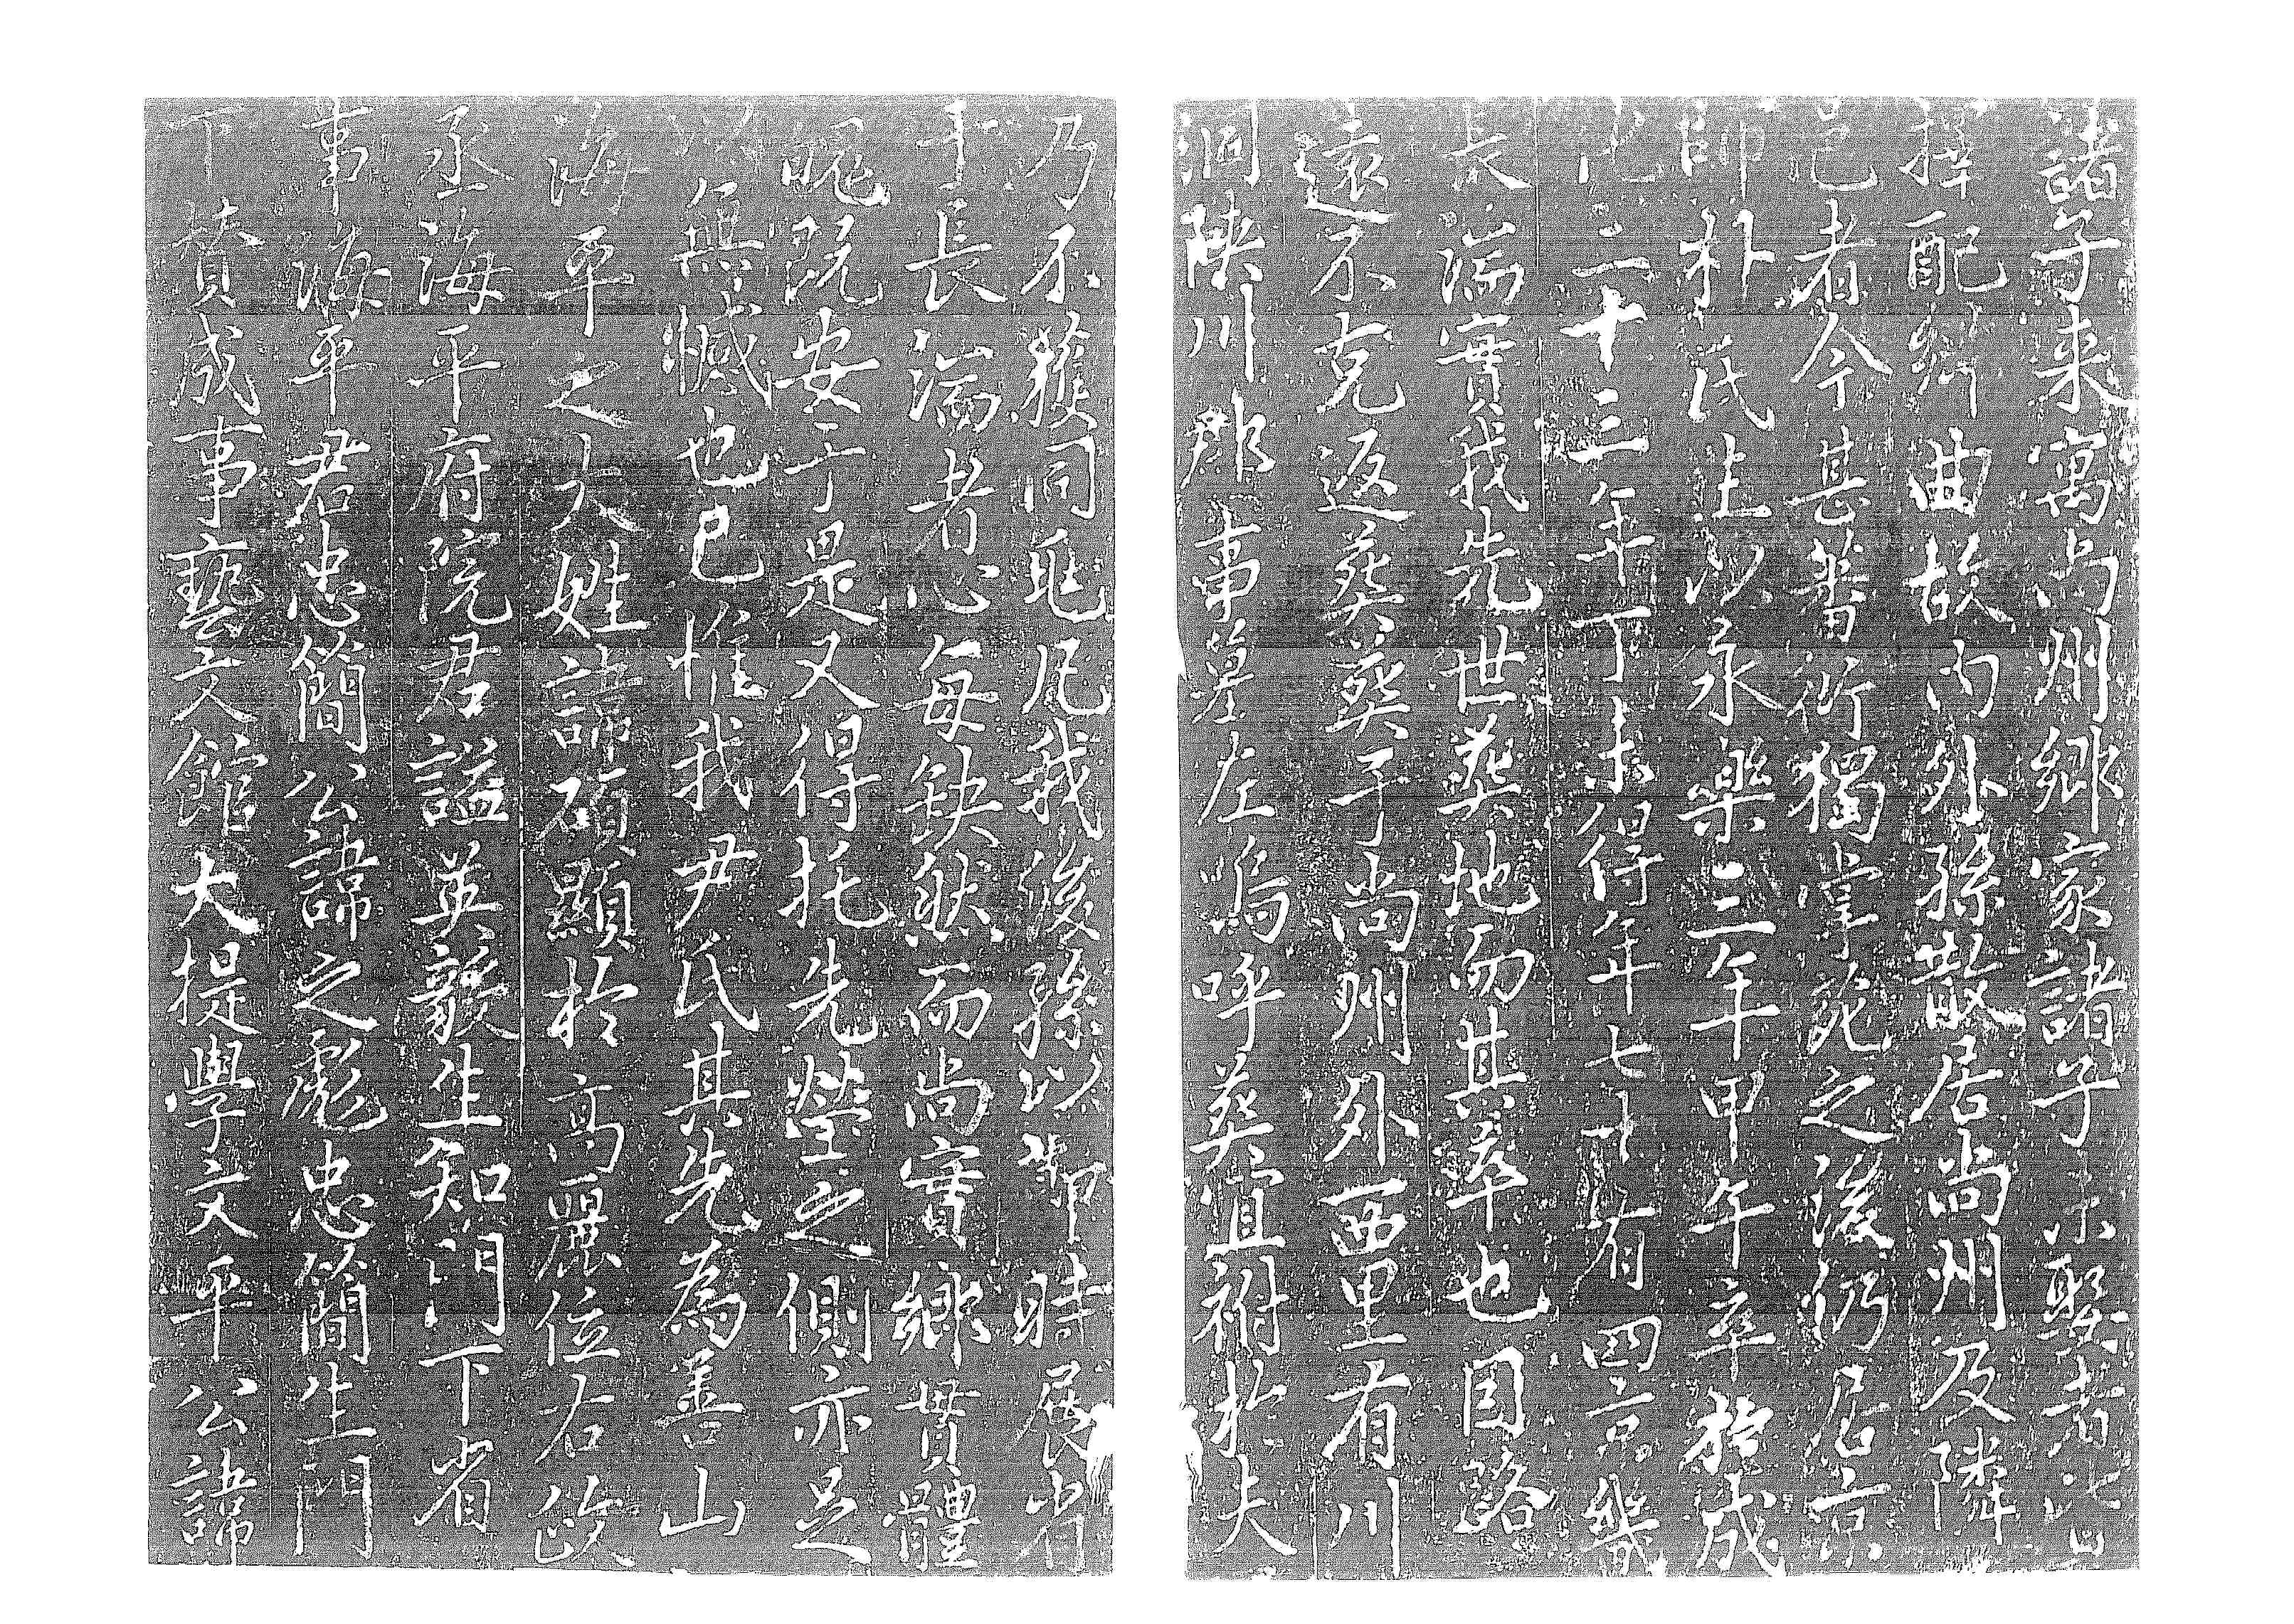 諸子来寓尚州鄉家諸子未娶者皆
擇配鄉曲故内外孫散居尚州及隣
邑者今甚蕃衍獨掌苑之後仍居京
師朴氏生以永樂二年甲午卒於成
化二十三年丁未得年七十有四京畿
長湍實我先世葬地而其卒也因路
遠不克返葬葬于尚州外西里有川
洞陜川郡事墓左嗚呼葬宜祔於夫
乃不獲同兆凡我後孫以節時展省
于長湍者心每缺然而尚實鄉貫體
魄既安于是又得托先塋之側亦足
以無憾也已惟我尹氏其先為善山
海平之大姓諱碩顯於高麗位右政
丞海平府院君謚英毅生知門下省
事海平君忠簡公諱之彪忠簡生門
下贊成事藝文館大提學文平公諱